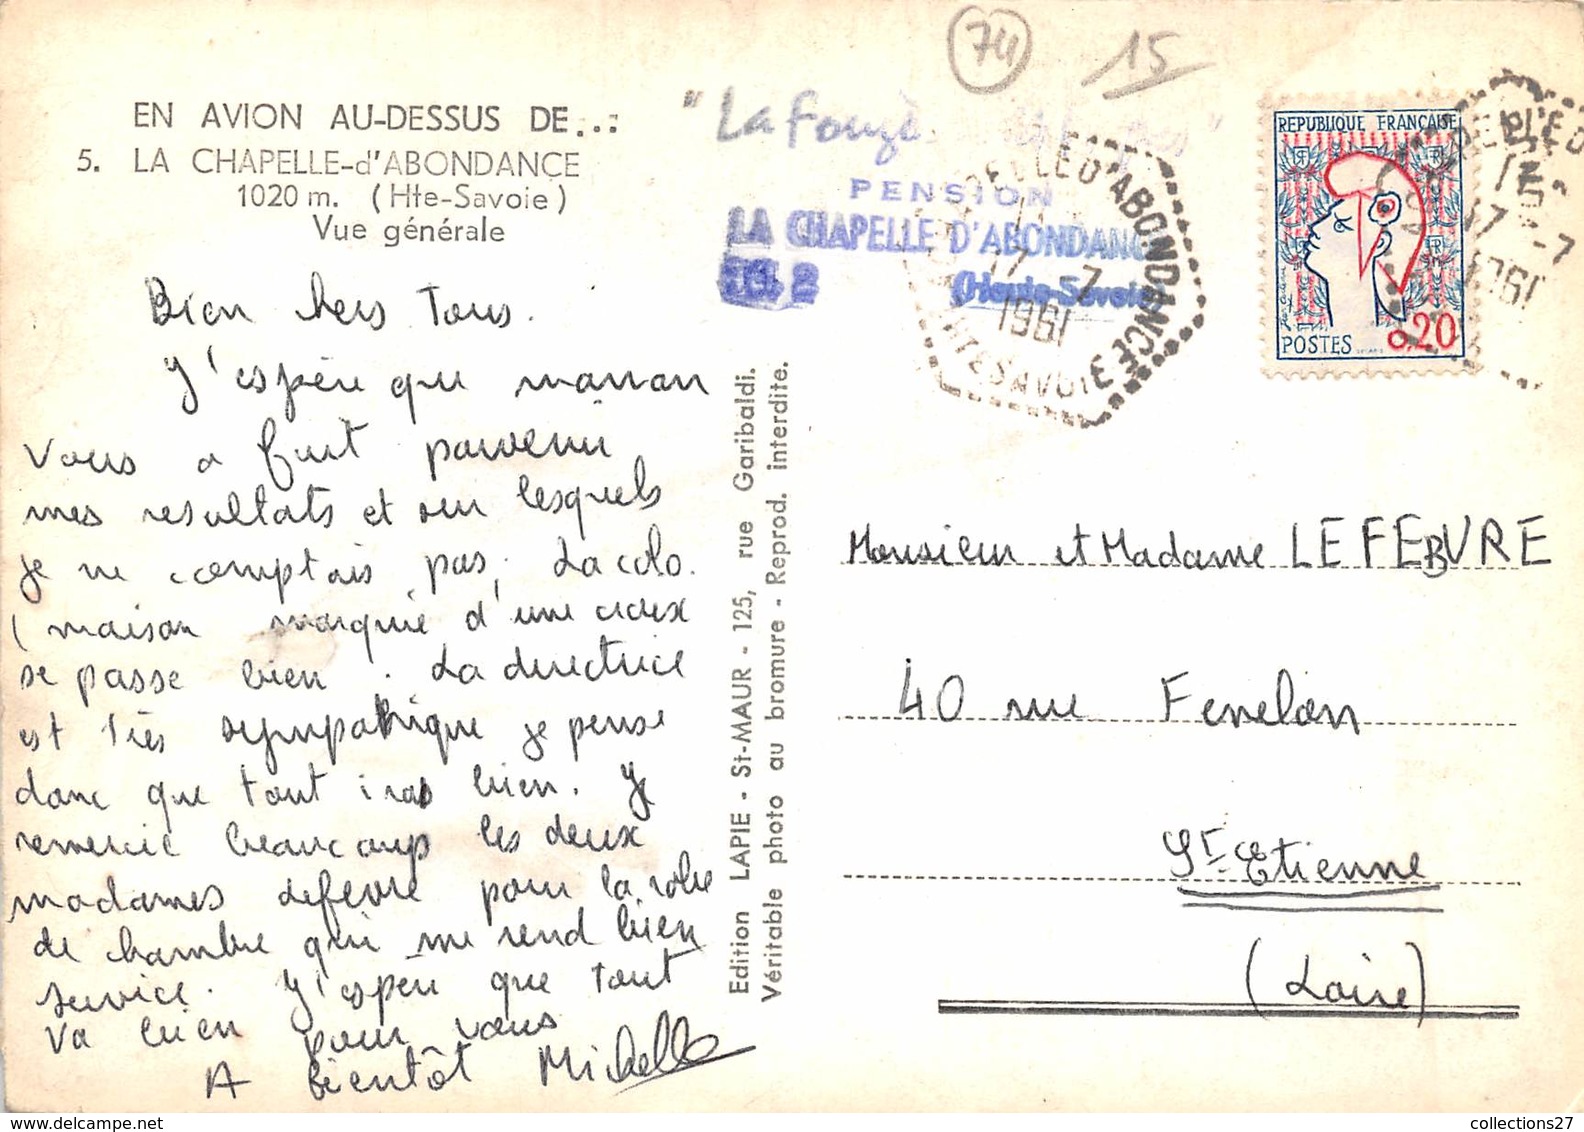 EN AVION AU-DESSUS DE...:
5. LA CHAPELLE-d'ABONDANCE
1020 m. (Hte-Savoie)
Vue générale
Bien chers Tous.
J'espère que maman
vous a fait parvenir
mes resultats et sur lesquels
je ne comptais pas. La colo.
(maison marquée d'une croix
se passe bien. La directrice
est très sympathique je pense
donc que tout ira bien. Je
remercie beaucoup les deux
madames Lefevre pour la robe
de chambre qui me rend bien
service. J'espère que tout
va bien pour vous
A bientôt Michelle
Edition LAPIE - St-MAUR - 125, rue Garibaldi.
Véritable photo au bromure - Reprod. interdite.
74
15
"La
PENSION
LA CHAPELLE D'ABONDANCE
(Haute-Savoie)
Tél. 2
CHAPELLE D'ABONDANCE
17 -7
1961
HTE SAVOIE
REPUBLIQUE FRANÇAISE
POSTES 0,20
17 -7
1961
Monsieur et Madame LEFEBVRE
40 rue Fenelon
St-Etienne
(Loire)
collections27